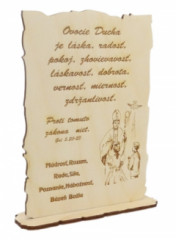 Ovocie Ducha
je láska, radosť,
pokoj, zhovievavosť,
láskavosť, dobrota,
vernosť, miernosť,
zdržanlivosť.
Proti tomuto
zákona niet.
Gal 5,22-23
Múdrosť, Rozum,
Rada, Sila,
Poznanie, Nábožnosť,
Bázeň Božia